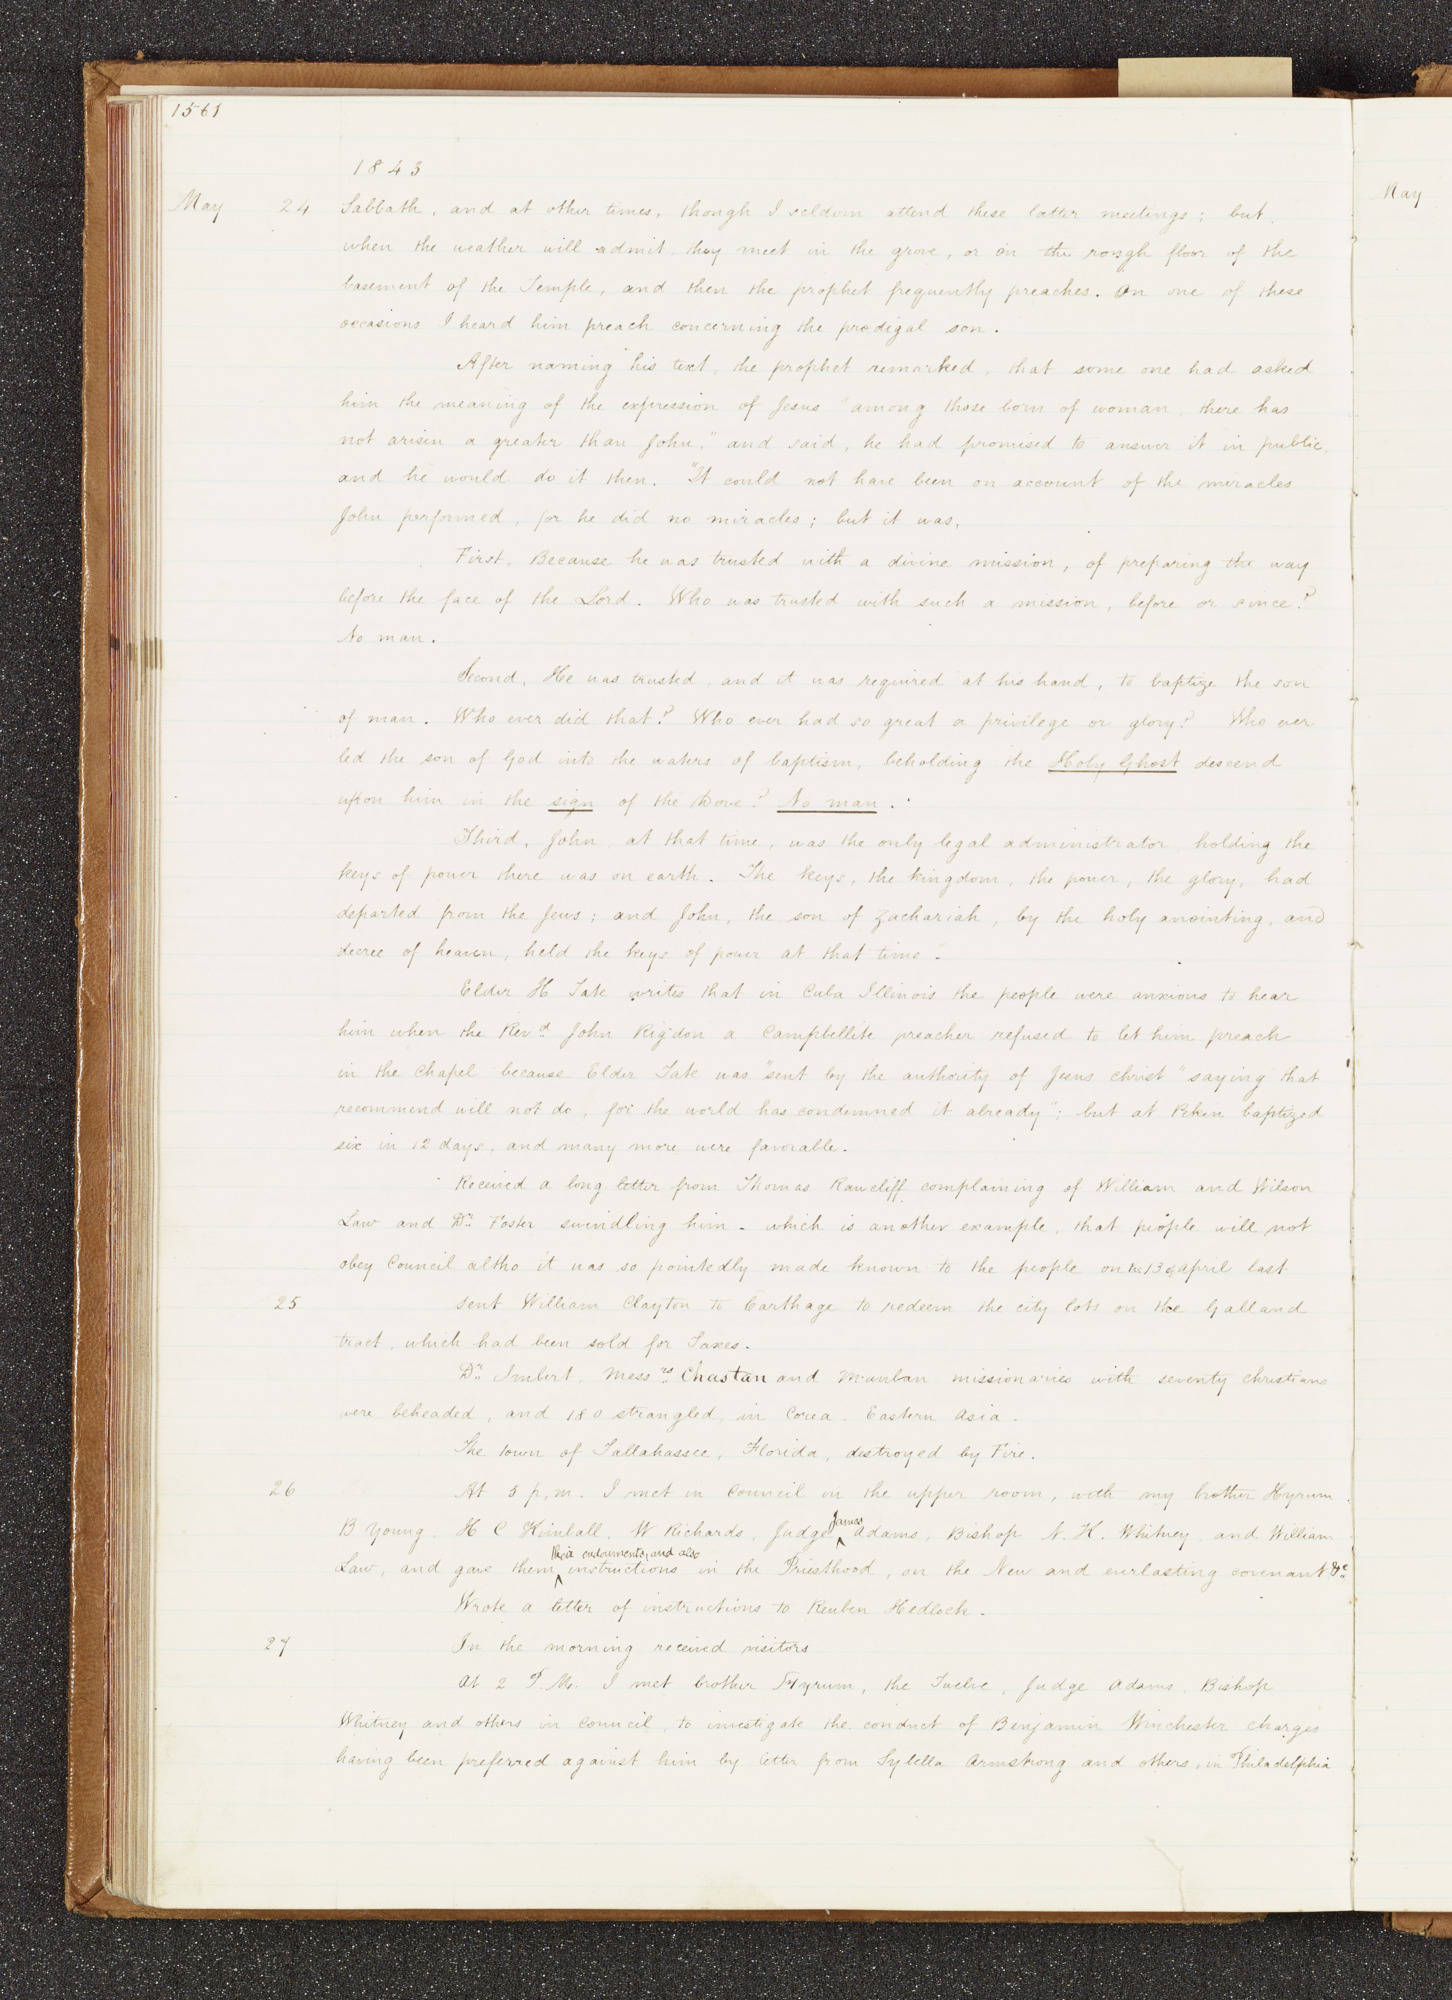 1561
1843
May 24 Sabbath, and at other times, though I seldom attend these latter meetings; but
when the weather will admit, they meet in the grove, or on the rough floor of the
basement of the Temple, and then the prophet frequently preaches. On one of these
occasions I heard him preach concerning the prodigal son.
After naming his text, the prophet remarked, that some one had asked
him the meaning of the expression of Jesus "among those born of woman there has
not arisen a greater than John," and said, he had promised to answer it in public,
and he would do it then. "It could not have been on account of the miracles
John performed, for he did no miracles; but it was,
First, Because he was trusted with a divine mission, of preparing the way
before the face of the Lord. Who was trusted with such a mission, before or since?
No man.
Second, He was trusted, and it was required at his hand, to baptize the son
of man. Who ever did that? Who ever had so great a privilege or glory? Who ever
led the son of God into the waters of baptism, beholding the Holy Ghost descend
upon him in the sign of the Dove? No man.
Third, John, at that time, was the only legal administrator, holding the
keys of power there was on earth. The keys, the kingdom, the power, the glory, had
departed from the Jews; and John, the son of Zachariah, by the holy anointing, and
decree of heaven, held the keys of power at that time."
Elder H Tate writes that in Cuba Illinois the people were anxious to hear
him when the Revd. John Rigdon a Campbellite preacher refused to let him preach
in the chapel because Elder Tate was "sent by the authority of Jesus christ" saying "that
recommend will not do, for the world has condemned it already"; but at Pekin baptized
six in 12 days, and many more were favorable.
Received a long letter from Thomas Rawcliff complaining of William and Wilson
Law and Dr. Foster swindling him - which is another example, that people will not
obey Council altho it was so pointedly made known to the people on the 13 of april last
25 Sent William Clayton to Carthage to redeem the city lots on the Galland
tract, which had been sold for Taxes.
Dr. Imbert, Messrs. Chastan and Mauban missionaries with seventy christians
were beheaded, and 180 strangled, in Corea. Eastern Asia.
The town of Tallahassee, Florida, destroyed by Fire.
26 At 5 p.m. I met in Council in the upper room, with my brother Hyrum
James
B Young, H C Kimball, W Richards, Judge ^ Adams, Bishop N. K. Whitney, and William
their endowments, and also
Law, and gave them ^ instructions in the Priesthood, on the New and everlasting covenant &c.
Wrote a letter of instructions to Reuben Hedlock.
27 In the morning received visitors
At 2 P.M. I met brother Hyrum, the Twelve, Judge Adams, Bishop
Whitney and others in council, to investigate the conduct of Benjamin Winchester charges
having been preferred against him by letter from Sybella Armstrong and others, in Philadelphia
May